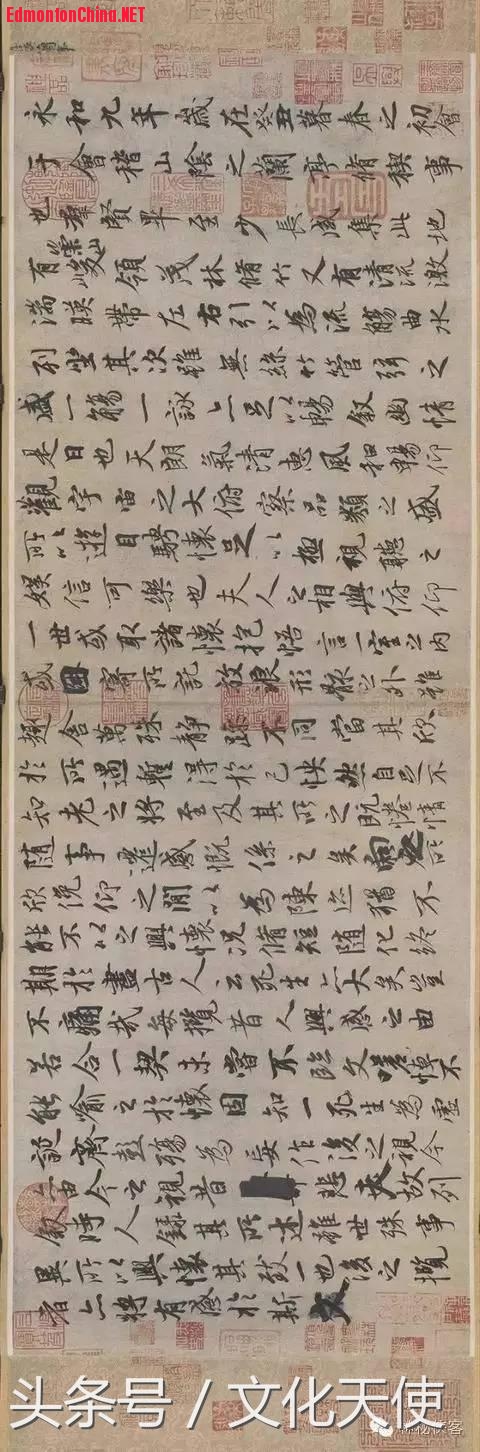 EdmontonChina.NET
永和九年歲在癸丑暮春之初會
于會稽山陰之蘭亭脩稧事
也群賢畢至少長咸集此地
有崇山峻領茂林脩竹又有清流激
湍暎帶左右引以為流觴曲水
列坐其次雖無絲竹管弦之
盛一觴一詠亦足以暢敘幽情
是日也天朗氣清惠風和暢仰
觀宇宙之大俯察品類之盛
所以遊目騁懷足以極視聽之
娛信可樂也夫人之相與俯仰
一世或取諸懷抱悟言一室之內
或因寄所託放浪形骸之外雖
趣舍萬殊靜躁不同當其欣
於所遇暫得於己怏然自足不
知老之將至及其所之既惓情
隨事遷感慨係之矣向之所
欣俛仰之閒以為陳迹猶不
能不以之興懷況脩短隨化終
期於盡古人云死生亦大矣豈
不痛哉每攬昔人興感之由
若合一契未嘗不臨文嗟悼不
能喻之於懷固知一死生為虛
誕齊彭殤為妄作後之視今
亦由今之視昔悲夫故列
敘時人錄其所述雖世殊事
異所以興懷其致一也後之攬
者亦將有感於斯文
头条号 / 文化天使